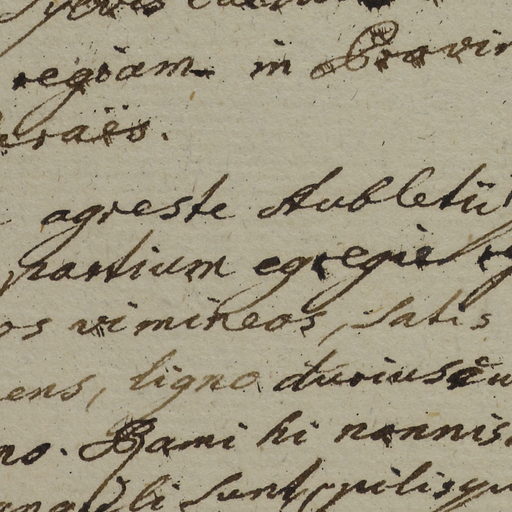 regiam in Provin
raës.
agreste Aubletii
partium egregie
os vimineos, satis
ens, ligno duriuscu
no. Rami hi nonnis
guli sunt, pilisqu